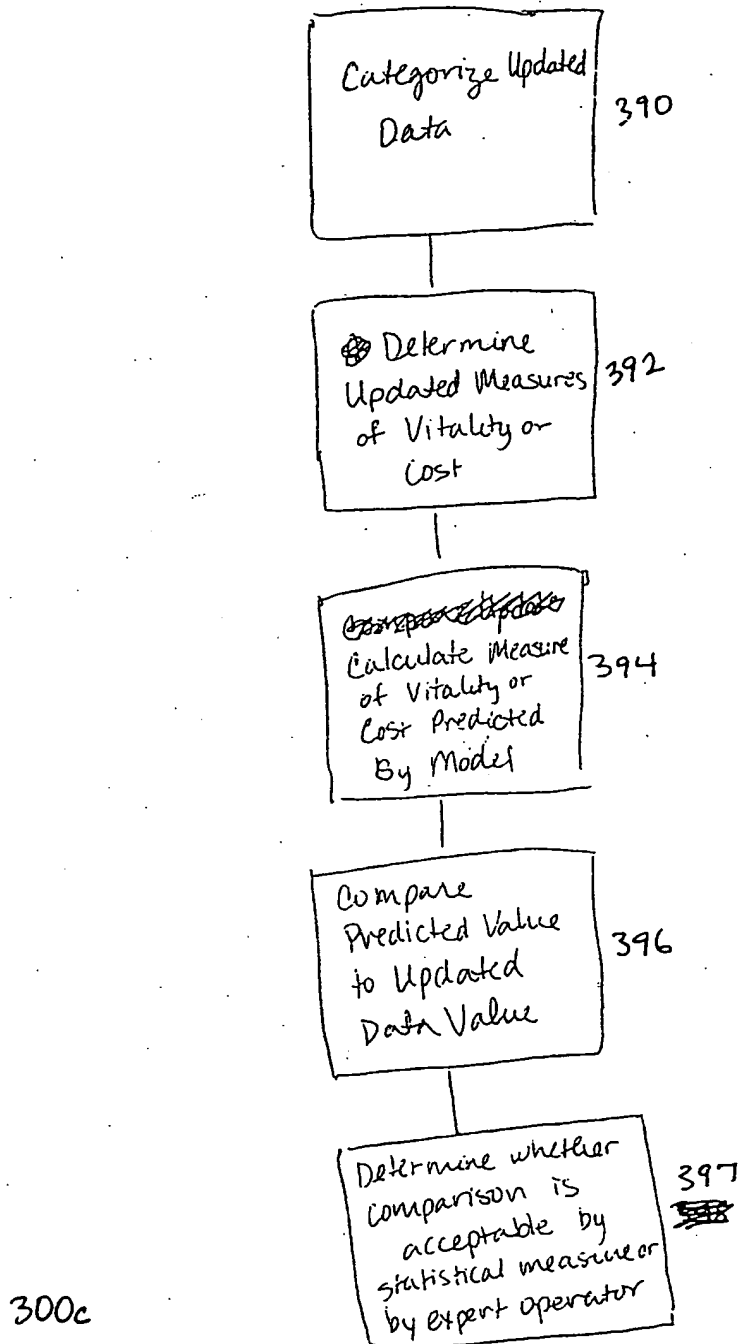 Categorize Updated
Data
390
Determine
Updated Measures
of Vitality or
Cost
392
Calculate Measure
of Vitality or
Cost Predicted
By Model
394
Compare
Predicted Value
to Updated
Data Value
396
Determine whether
comparison is
acceptable by
statistical measure or
by expert operator
397
300c